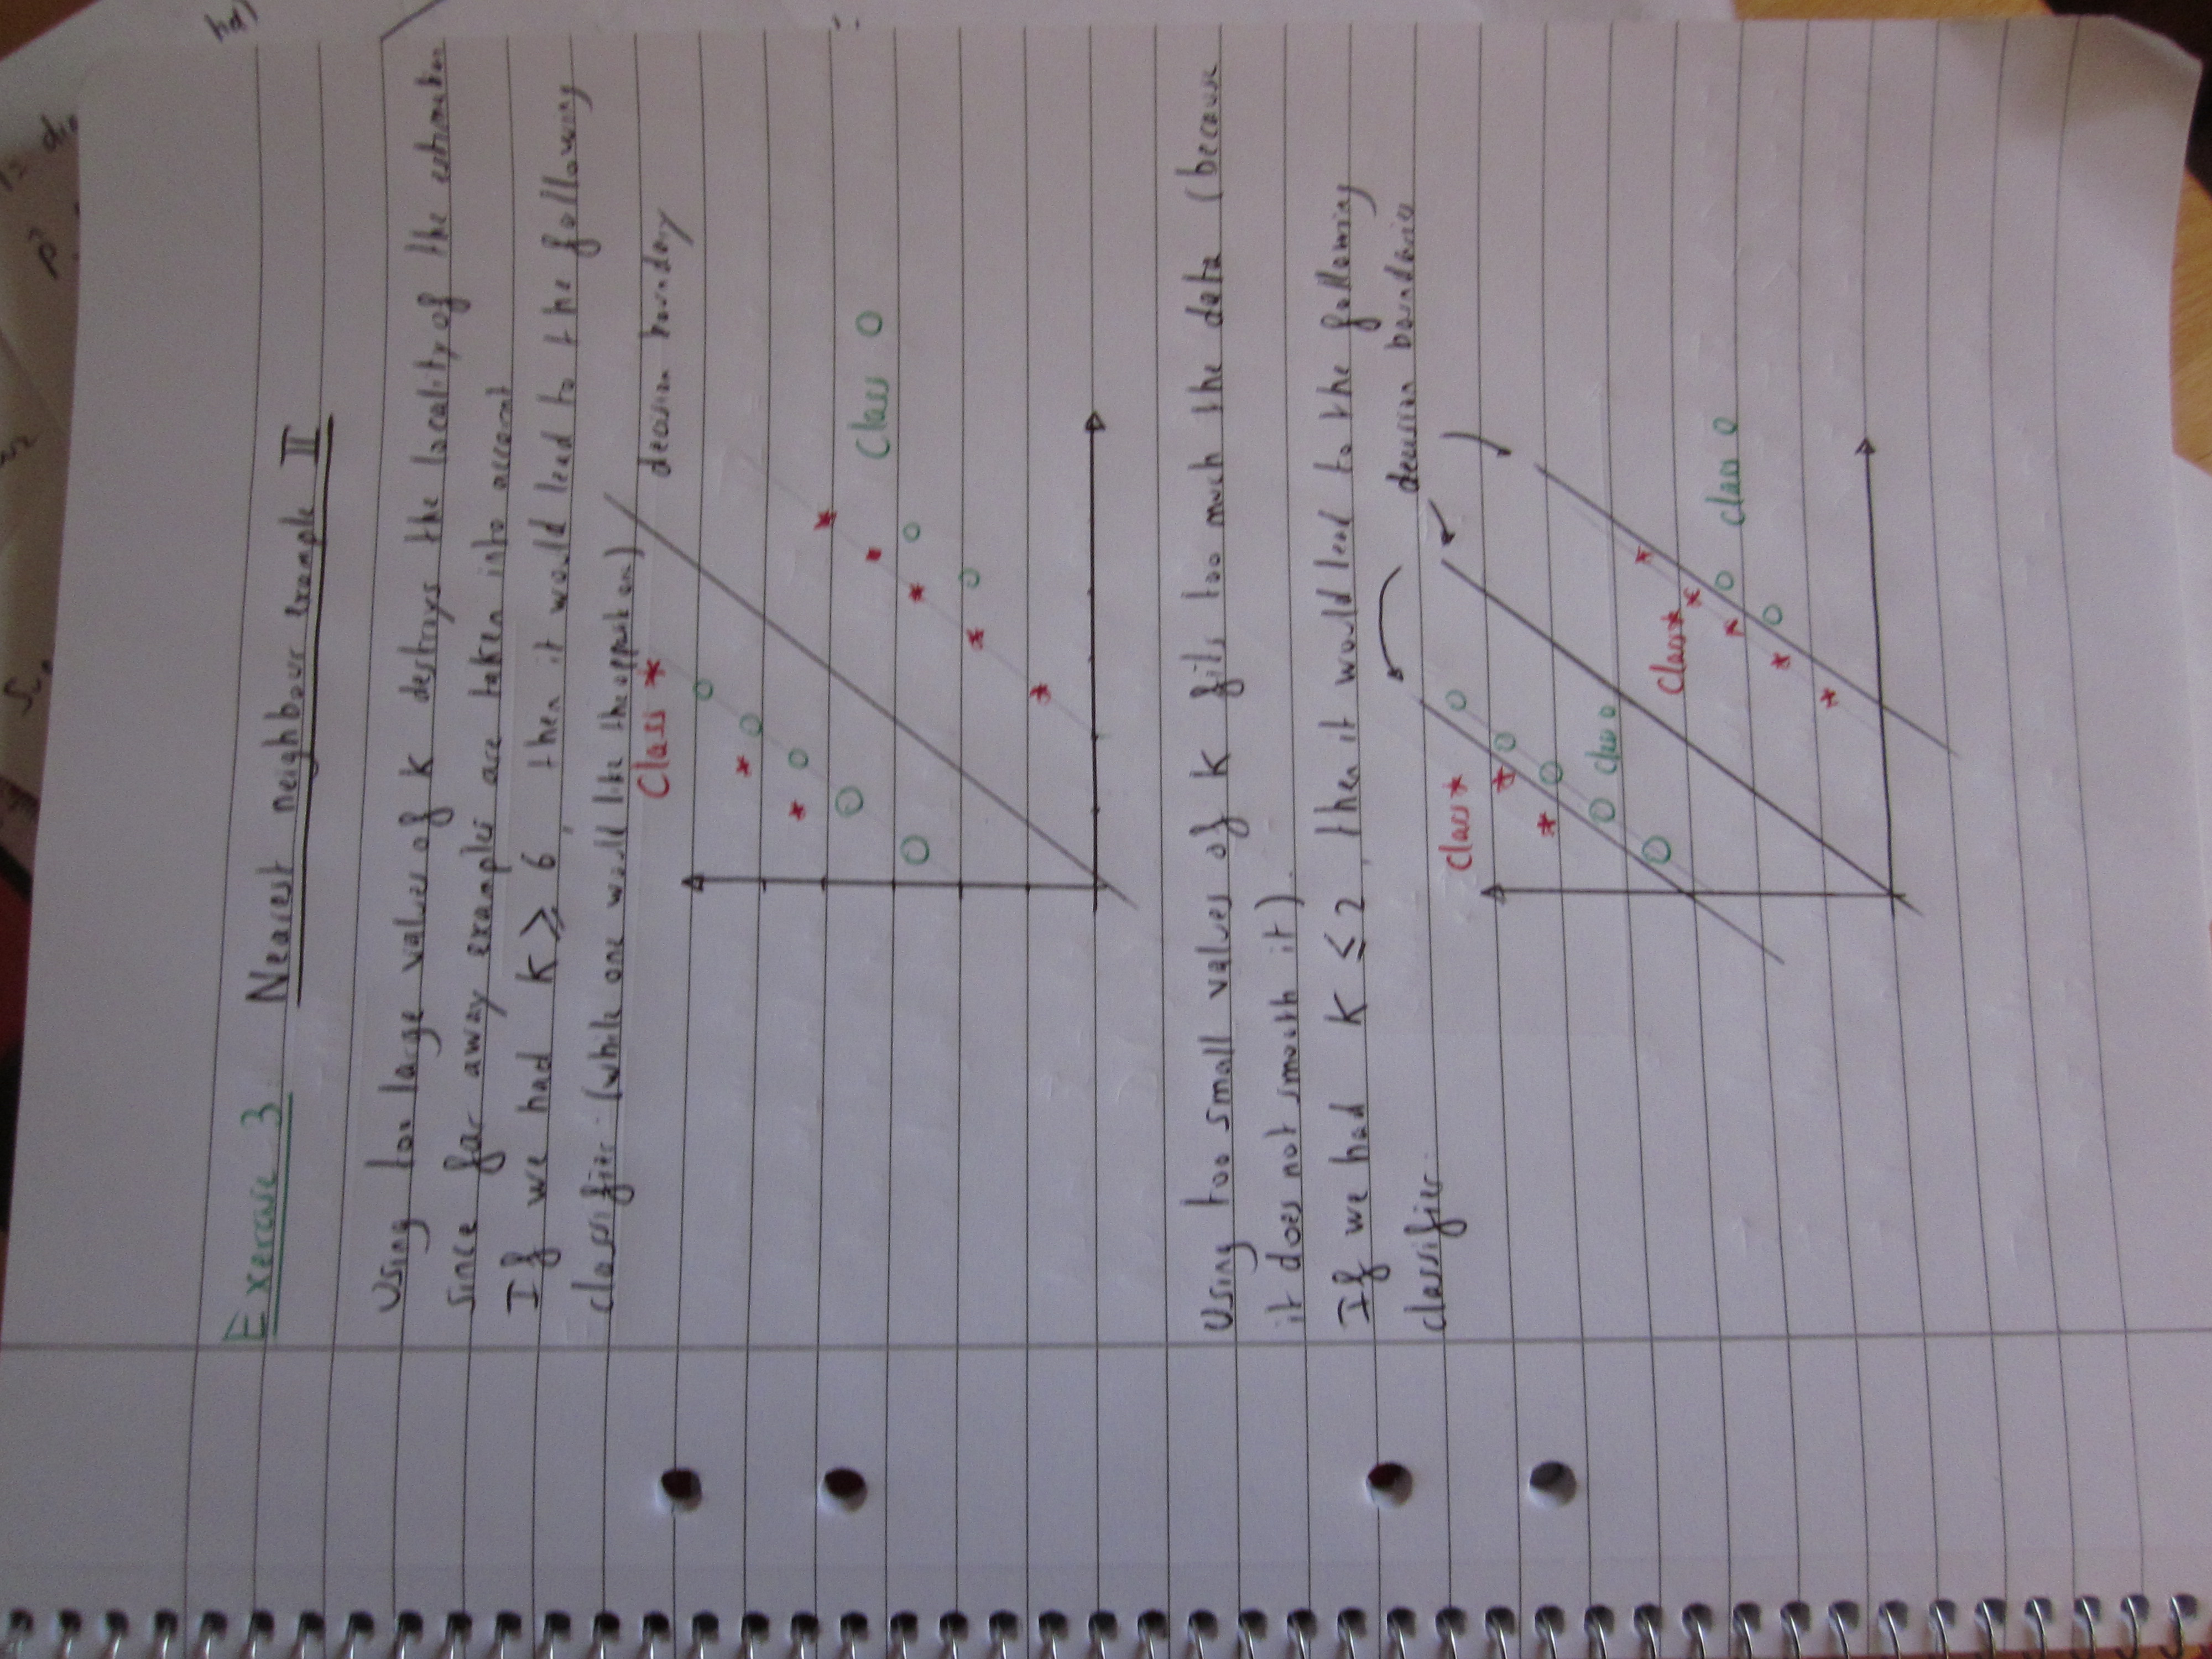 Exercise 3 Nearest neighbour example II
Using too large values of K destroys the locality of the estimation
since far away examples are taken into account
If we had K ≥ 6, then it would lead to the following
classifier (while one would like the opposit one)
Class *
decision boundary
Class O
Using too small values of K fits too much the data (because
it does not smooth it).
If we had K ≤ 2, then it would lead to the following
classifier
decision boundaries
Class *
Class o
Class *
class O